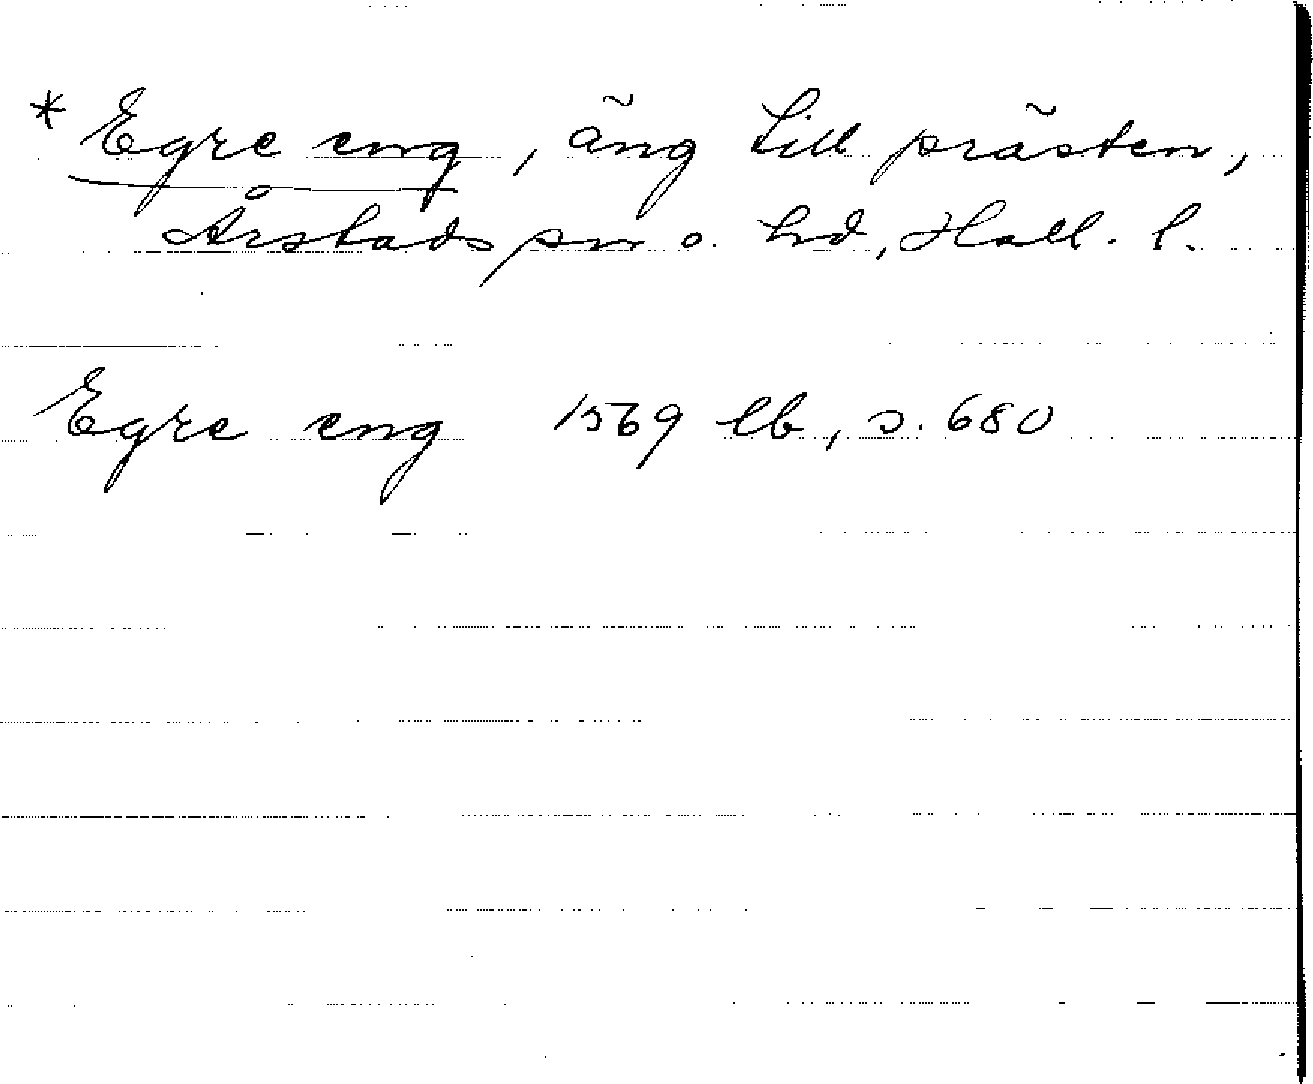 * Egre eng, äng till prästen,
Årstads sn o. hd, Hall. l.
Egre eng 1569 lb, s. 680